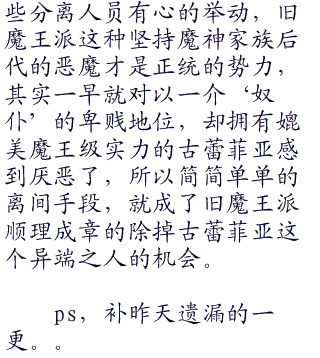 些分离人员有心的举动，旧
魔王派这种坚持魔神家族后
代的恶魔才是正统的势力，
其实一早就对以一介‘奴
仆’的卑贱地位，却拥有媲
美魔王级实力的古蕾菲亚感
到厌恶了，所以简简单单的
离间手段，就成了旧魔王派
顺理成章的除掉古蕾菲亚这
个异端之人的机会。
ps，补昨天遗漏的一
更。。